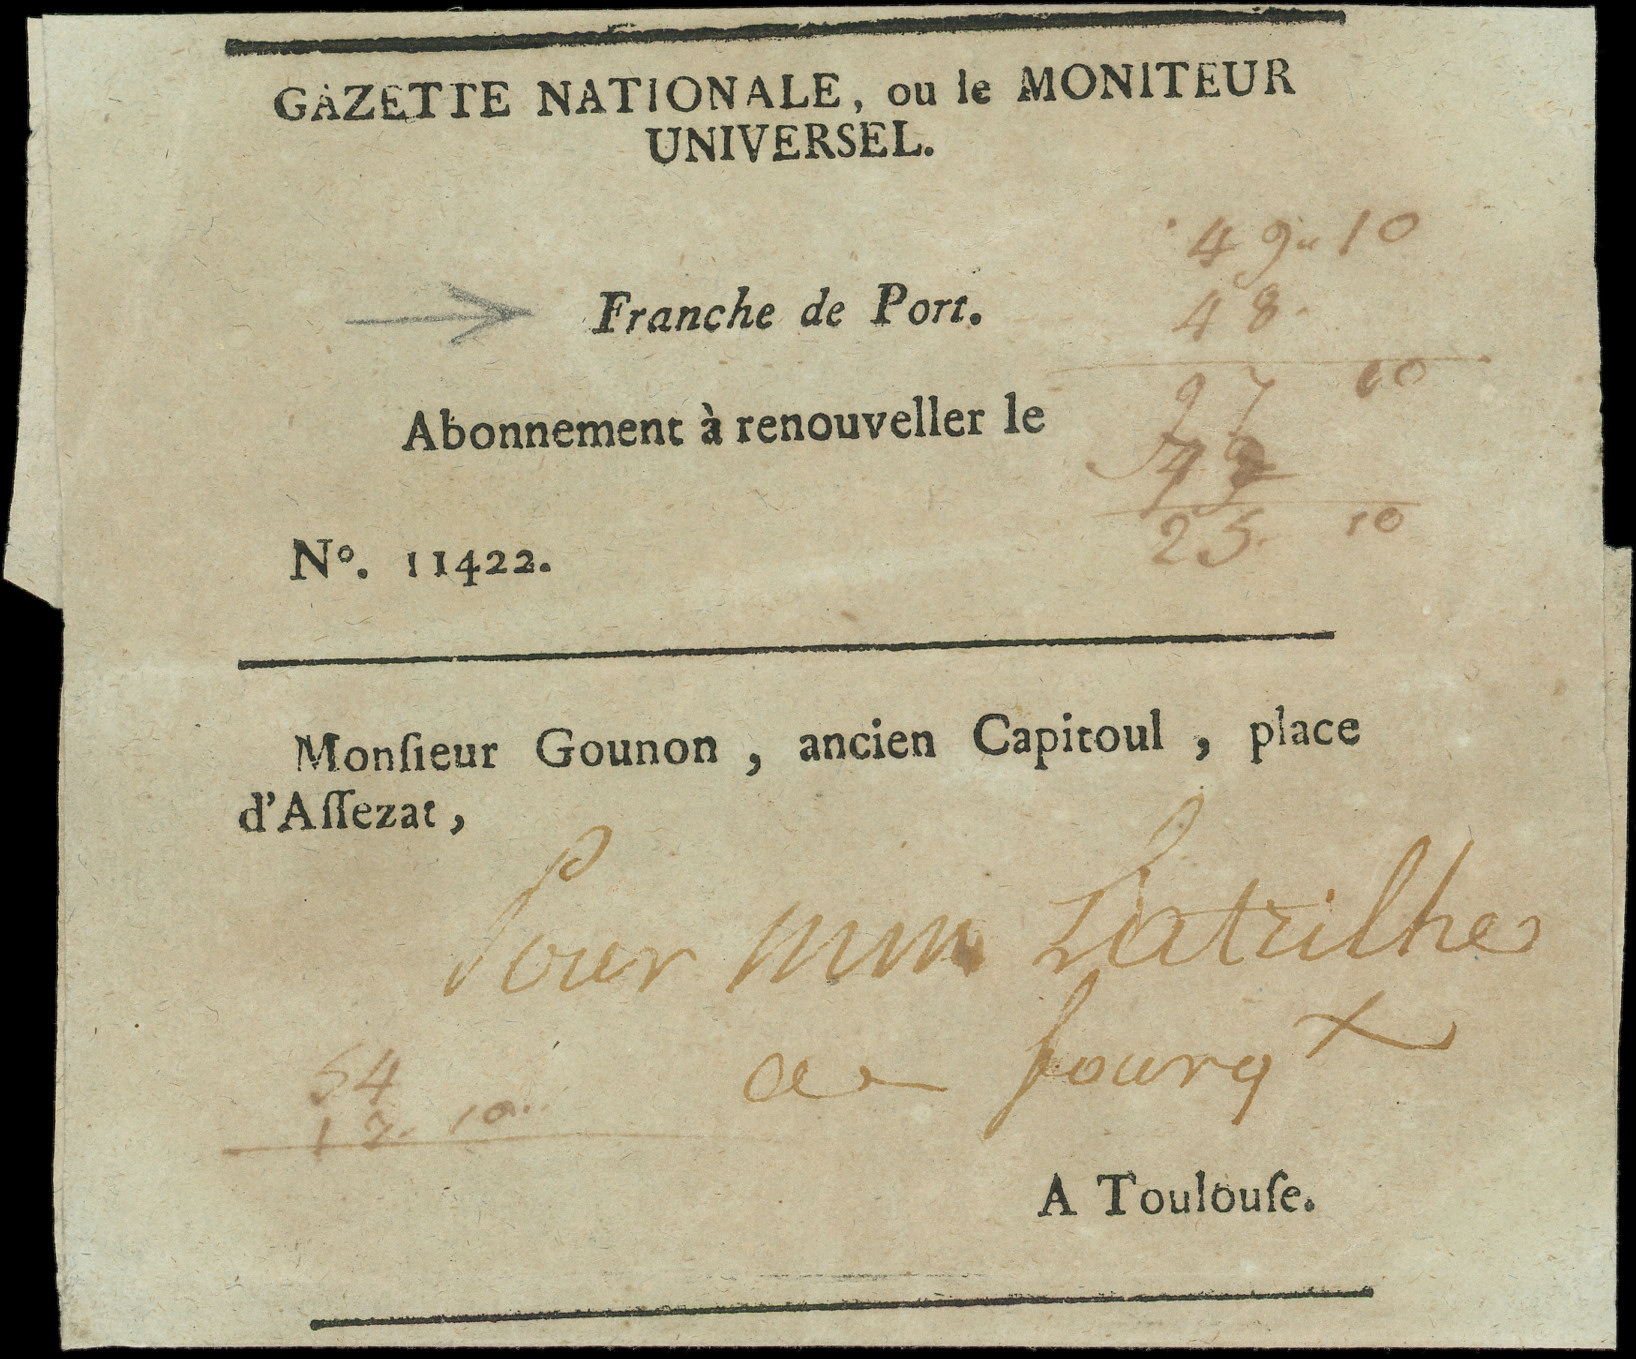 GAZETTE NATIONALE, ou le MONITEUR
UNIVERSEL.
49 10
48.
Franche de Port.
97 10
Abonnement à renouveller le
N°. 11422.
25. 10
Monſieur Gounon, ancien Capitoul, place
d'Aſſezat,
Pour
54
10
A Toulouſe.